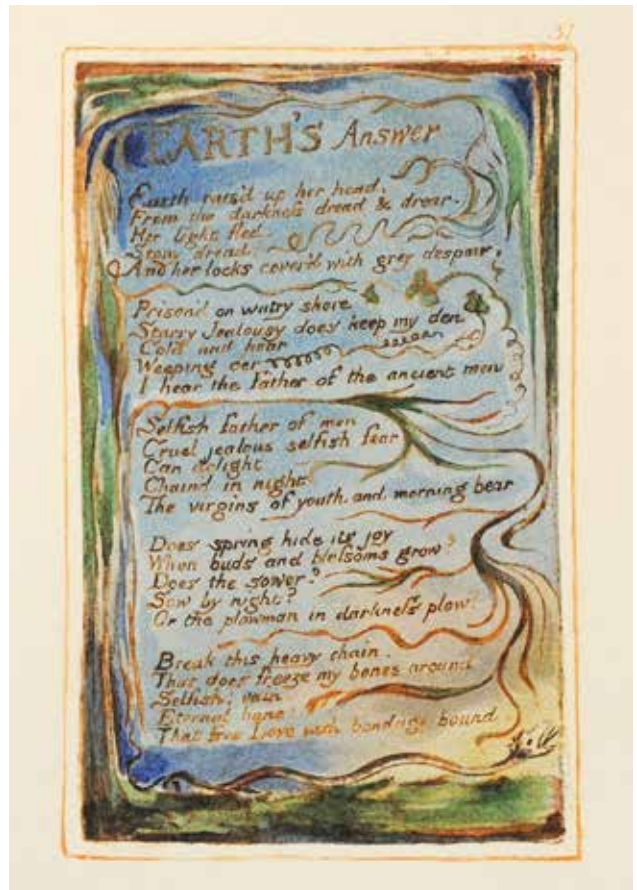 31
EARTH'S Answer
Earth rais'd up her head,
From the darkness dread & drear.
Her light fled:
Stony dread!
And her locks cover'd with grey despair.
Prison'd on watry shore
Starry Jealousy does keep my den
Cold and hoar
Weeping o'er
I hear the father of the ancient men
Selfish father of men
Cruel jealous selfish fear
Can delight
Chain'd in night
The virgins of youth and morning bear
Does spring hide its joy
When buds and blossoms grow?
Does the sower?
Sow by night?
Or the plowman in darkness plow?
Break this heavy chain.
That does freeze my bones around
Selfish! vain
Eternal bane!
That free Love with bondage bound